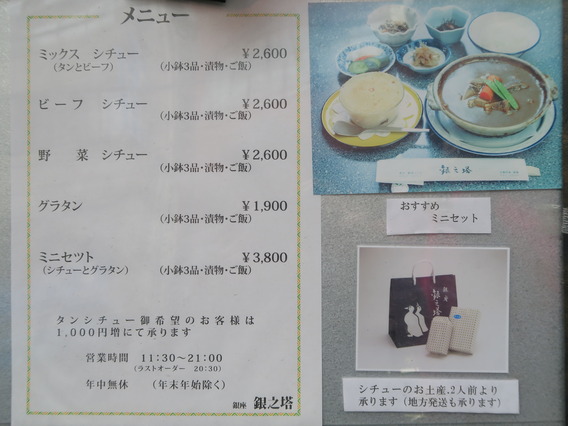 メニュー
ミックス シチュー ￥2,600
(タンとビーフ) (小鉢3品・漬物・ご飯)
ビーフ シチュー ￥2,600
(小鉢3品・漬物・ご飯)
野 菜 シチュー ￥2,600
(小鉢3品・漬物・ご飯)
グラタン ￥1,900
(小鉢3品・漬物・ご飯)
ミニセット ￥3,800
(シチューとグラタン) (小鉢3品・漬物・ご飯)
タンシチュー御希望のお客様は
1,000円増にて承ります
営業時間 11:30〜21:00
(ラストオーダー 20:30)
年中無休 (年末年始除く)
銀座 銀之塔
銀之塔
おすすめ
ミニセット
銀座
銀之塔
シチューのお土産､2人前より
承ります（地方発送も承ります）